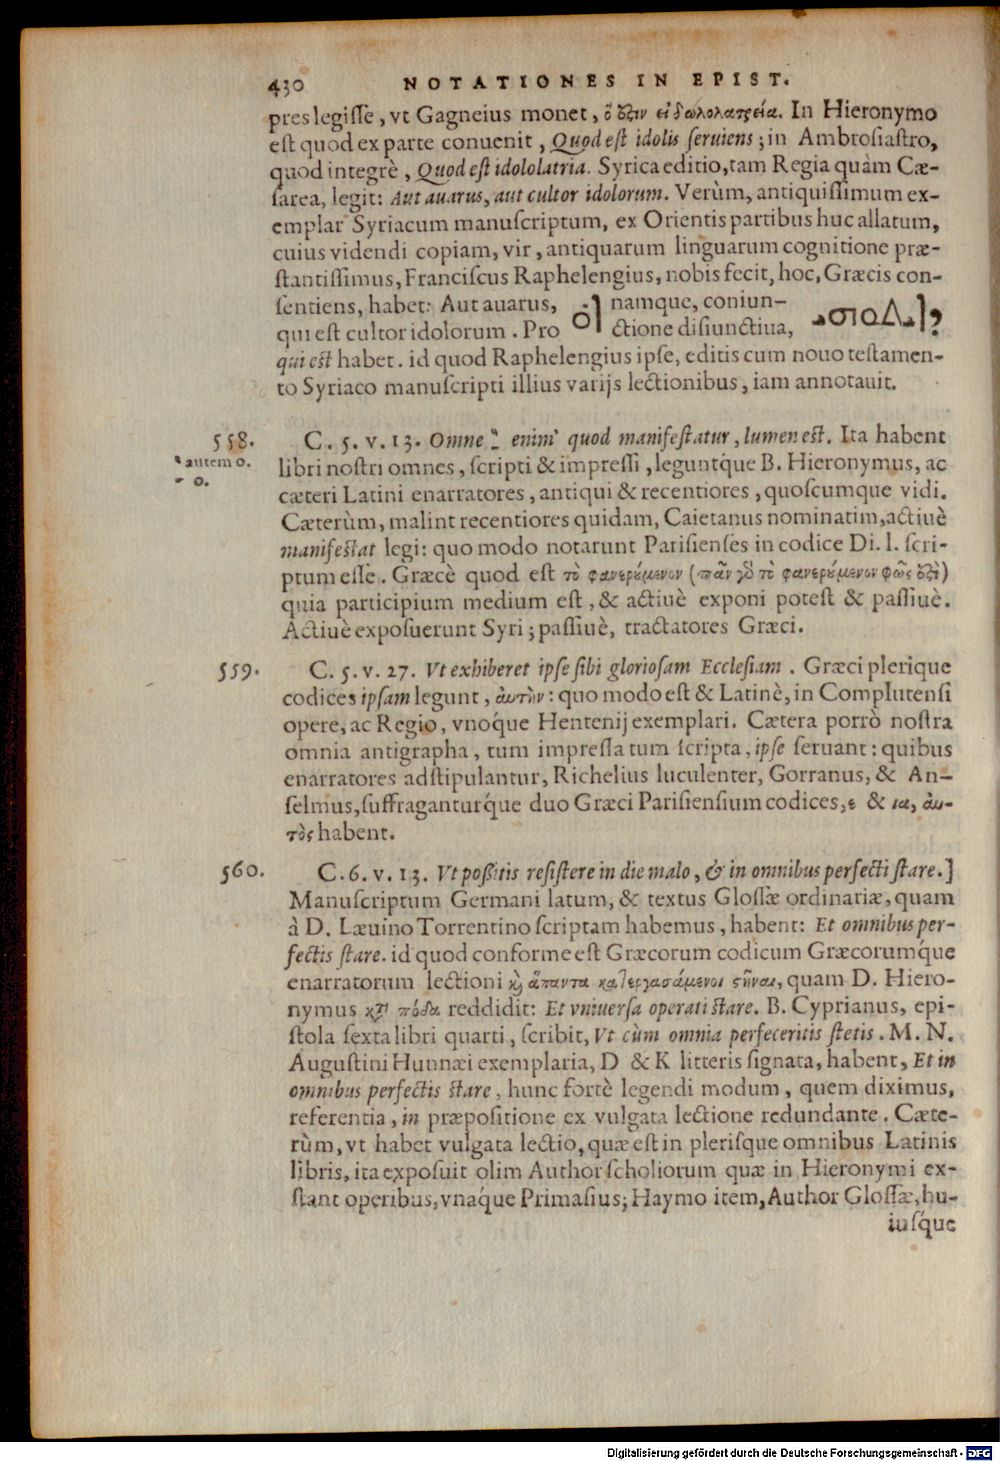 430 NOTATIONES IN EPIST.
pres legiſſe, vt Gagneius monet, ὅ ἐςιν εἰδωλολατρεία. In Hieronymo
eſt quod ex parte conuenit, Quod eſt idolis ſeruiens; in Ambroſiaſtro,
quod integrè, Quod eſt idololatria. Syrica editio, tam Regia quàm Cæ-
ſarea, legit: Aut auarus, aut cultor idolorum. Verùm, antiquiſſimum ex-
emplar Syriacum manuſcriptum, ex Orientis partibus huc allatum,
cuius videndi copiam, vir, antiquarum linguarum cognitione præ-
ſtantiſſimus, Franciſcus Raphelengius, nobis fecit, hoc, Græcis con-
ſentiens, habet: Aut auarus, ܐܘ namque, coniun-
qui eſt cultor idolorum. Pro ctione diſiunctiua,
qui est habet. id quod Raphelengius ipſe, editis cum nouo teſtamen-
to Syriaco manuſcripti illius varijs lectionibus, iam annotauit.
558. C. 5. v. 13. Omne enim quod manifeſtatur, lumen est. Ita habent
autem o. libri noſtri omnes, ſcripti & impreſſi, leguntq́ue B. Hieronymus, ac
o. cæteri Latini enarratores, antiqui & recentiores, quoſcumque vidi.
Cæterùm, malint recentiores quidam, Caietanus nominatim, actiuè
manifestat legi: quo modo notarunt Pariſienſes in codice Di. l. ſcri-
ptum eſſe. Græcè quod eſt τὸ φανερούμενον (πᾶν γὸ τὸ φανερούμενον φῶς ἐςὶ)
quia participium medium eſt, & actiuè exponi poteſt & paſſiuè.
Actiuè expoſuerunt Syri; paſſiuè, tractatores Græci.
559. C. 5. v. 27. Vt exhiberet ipſe ſibi glorioſam Eccleſiam. Græci plerique
codices ipſam legunt, αὐτὴν: quo modo eſt & Latinè, in Complutenſi
opere, ac Regio, vnoq́ue Hentenij exemplari. Cætera porrò noſtra
omnia antigrapha, tum impreſſa tum ſcripta, ipſe ſeruant: quibus
enarratores adſtipulantur, Richelius luculenter, Gorranus, & An-
ſelmus, ſuffraganturq́ue duo Græci Pariſienſium codices, ε & ια, αὐ-
τὸς habent.
560. C. 6. v. 13. Vt poßitis reſiſtere in die malo, & in omnibus perfecti ſtare.]
Manuſcriptum Germani latum, & textus Gloſſæ ordinariæ, quam
à D. Læuino Torrentino ſcriptam habemus, habent: Et omnibus per-
fectis ſtare. id quod conforme eſt Græcorum codicum Græcorumq́ue
enarratorum lectioni κỳ ἅπαντα κατεργασάμενοι ςῆναι, quam D. Hiero-
nymus κτ πόδα reddidit: Et vniuerſa operati ſtare. B. Cyprianus, epi-
ſtola ſexta libri quarti, ſcribit, Vt cùm omnia perfeceritis ſtetis. M. N.
Auguſtini Hunnæi exemplaria, D & K litteris ſignata, habent, Et in
omnibus perfectis ſtare, hunc fortè legendi modum, quem diximus,
referentia, in præpoſitione ex vulgata lectione redundante. Cæte-
rùm, vt habet vulgata lectio, quæ eſt in pleriſque omnibus Latinis
libris, ita expoſuit olim Author ſcholiorum quæ in Hieronymi ex-
ſtant operibus, vnaq́ue Primaſius; Haymo item, Author Gloſſæ, hu-
iuſq́ue
Digitalisierung gefördert durch die Deutsche Forschungsgemeinschaft - DFG